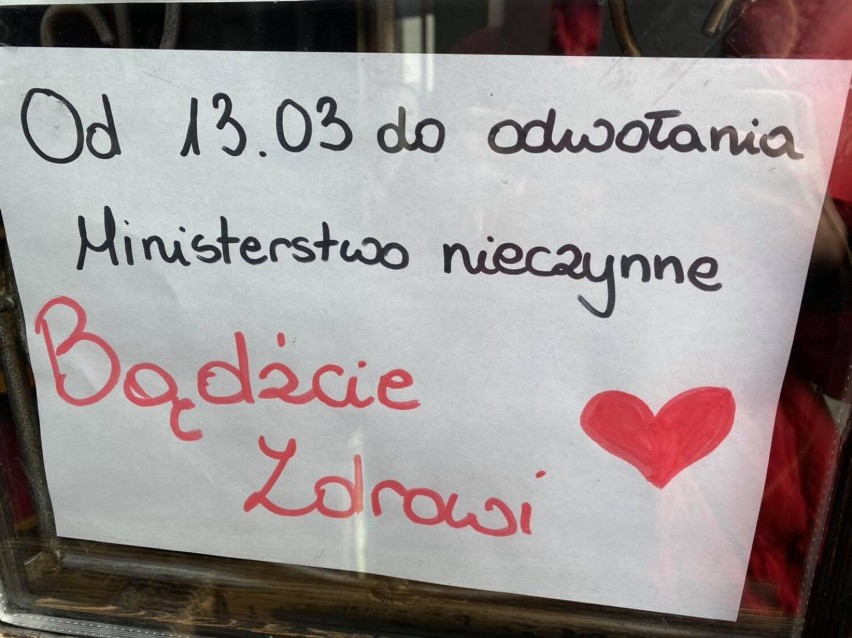 Od 13.03 do odwołania
Ministerstwo nieczynne
Bądźcie
Zdrowi